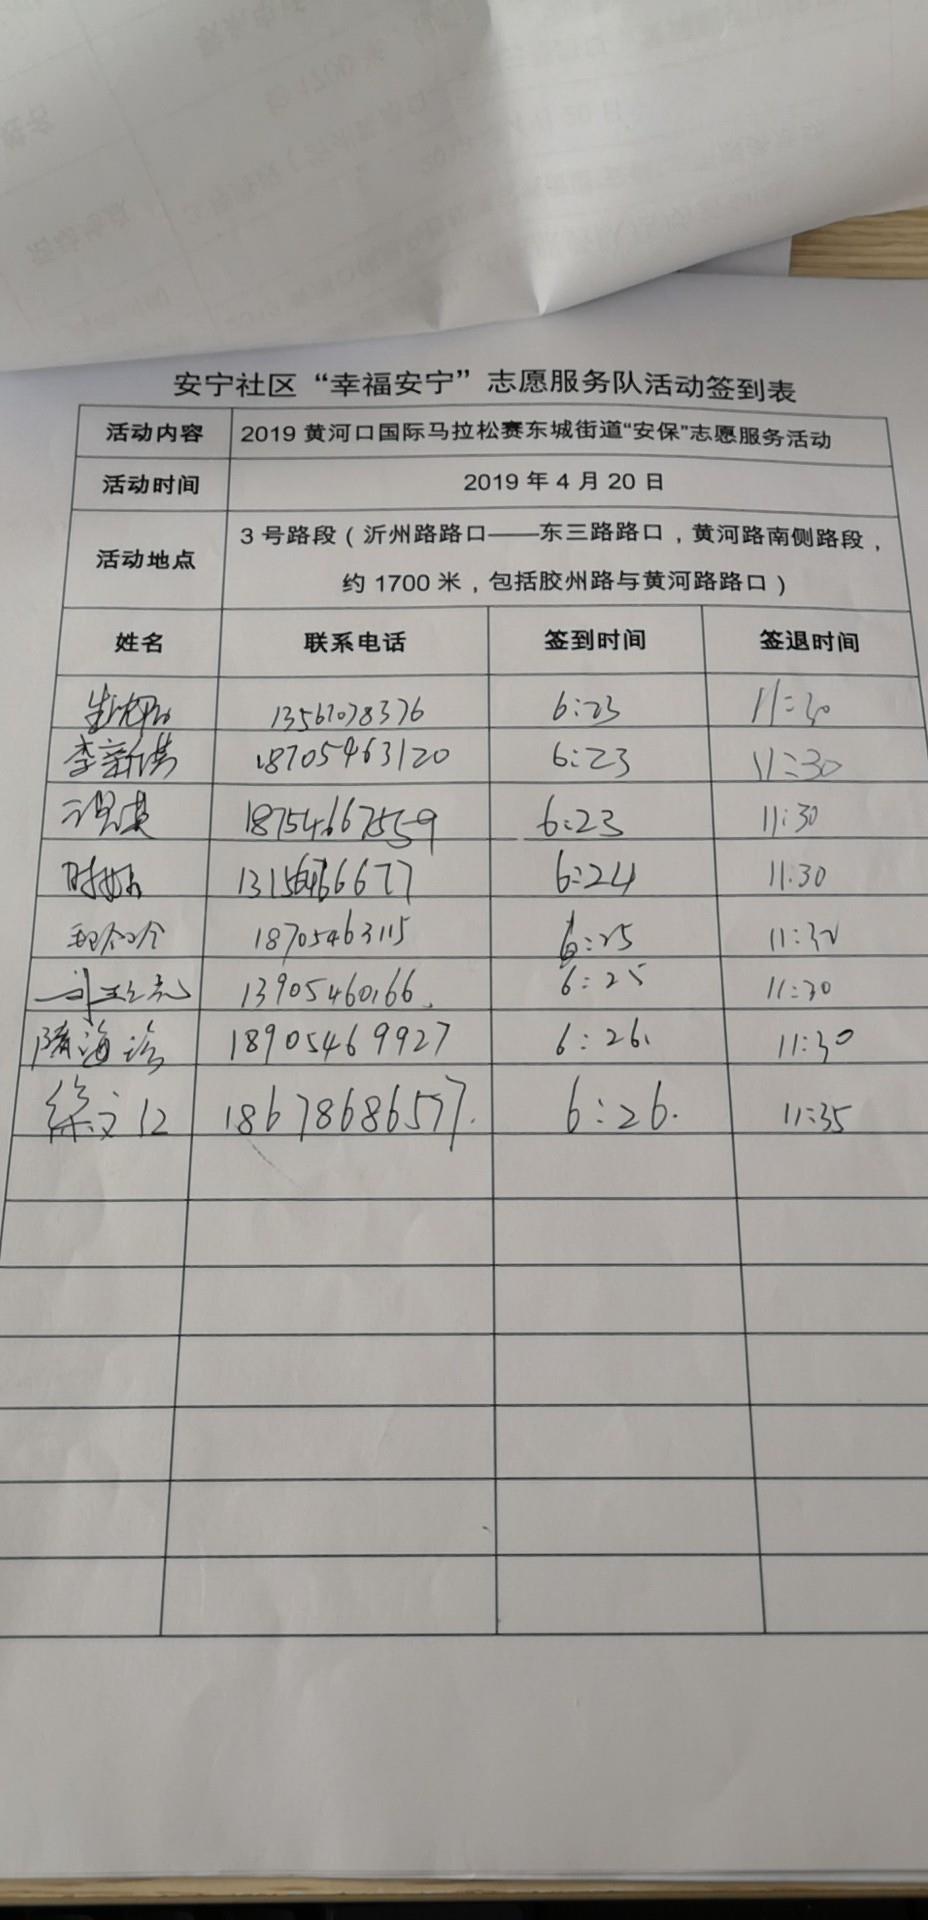 安宁社区“幸福安宁”志愿服务队活动签到表
活动内容 2019黄河口国际马拉松赛东城街道“安保”志愿服务活动
活动时间 2019年4月20日
活动地点 3号路段（沂州路路口——东三路路口，黄河路南侧路段，
约1700米，包括胶州路与黄河路路口）
姓名 联系电话 签到时间 签退时间
13561078376 6:23 11:30
李新洪 18705463120 6:23 11:30
18754667559 6:23 11:30
时 6:24 11:30
18705463115 6:25 11:30
13905460166. 6:25 11:30
隋海珍 18905469927 6:26. 11:30
徐文江 18678686577. 6:26. 11:35